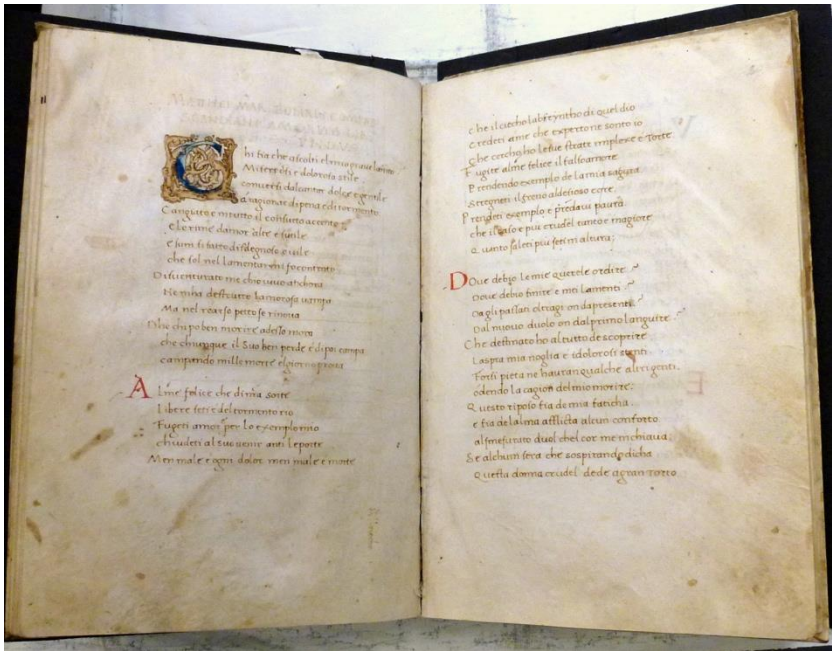 C
hi fia che ascolti el mio graue lamento
Miseri versi e doloroso stile
conuersi dal cantar dolce e gentile
a ragionar di pena e di tormento
Cangiato e in tutto il consueto accento
e le rime damor alte e sutile
e son si fatto disdegnoso e uile
che sol nel lamentar mi fo contento
Disuenturato me chio uiuo anchora
Ne mha destrutto lamorosa uampa
Ma nel roarso petto se rinoua
che chi po ben morire adesso mora
che chiunque il suo ben perde e dipoi campa
campando mille morte el giorno proua
Alme felice che di mia sorte
Libere seti e del tormento rio
Fugeti amor per lo exempio mio
chiudeti al suo uenir anti le porte
Men male e ogni dolor men male e morte
che il ciecho labyryntho di quel dio
Credeti a me che experto ne sonto io
Che cercho ho le sue strate implexe e torte
Fugite alme felice il falso amore
Prendendo exempio de la mia sagura
Stregneti il freno al desioso core
Prendeti exempio e prendaui paura
che il caso e piu crudel tanto e magiore
Quanto saleti piu seti in altura:
Doue debio le mie querele ordire
Doue debio finire e miei lamenti
Da gli passati oltragi on da presente
Dal nuouo duolo on dal primo languire
Che destinato ho al tutto de scoprire
Laspra mia noglia e i dolorosi stenti
Forsi pieta ne hauran qualche altri genti
odendo la cagion del mio morire:
Questo riposo fia de mia faticha
e fia de lalma afflicta alcun conforto
al smesurato duol chel cor me inchiaua;
Se alchun sera che sospirando dicha
Questa donna crudel dede a gran torto